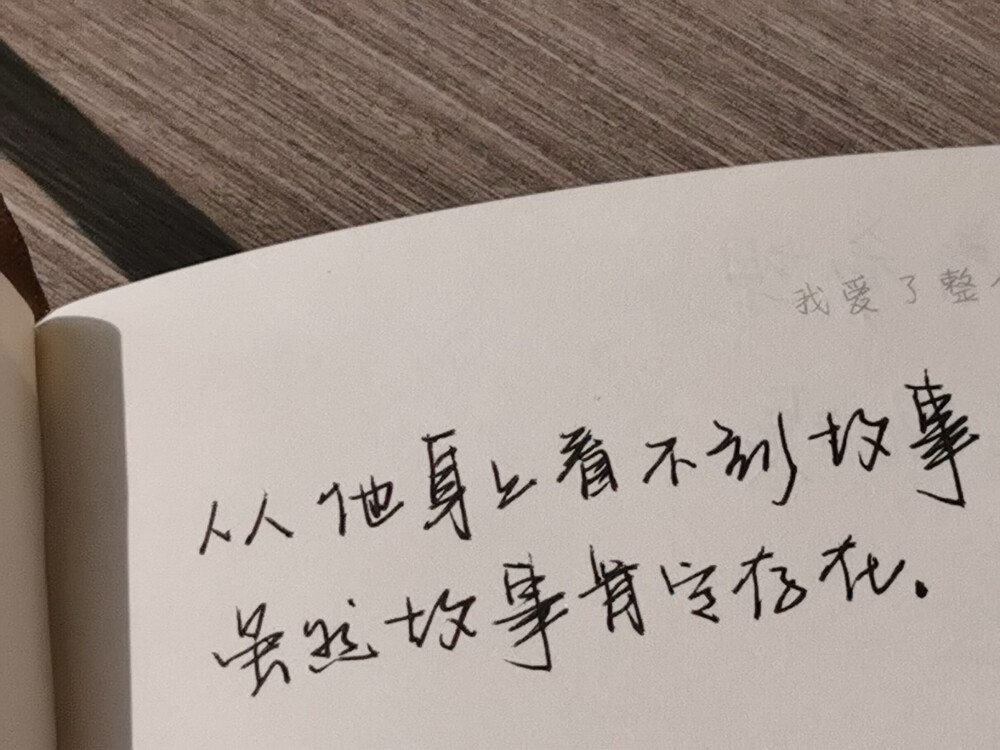 我爱了整
从他身上看不到故事
虽然故事肯定存在.